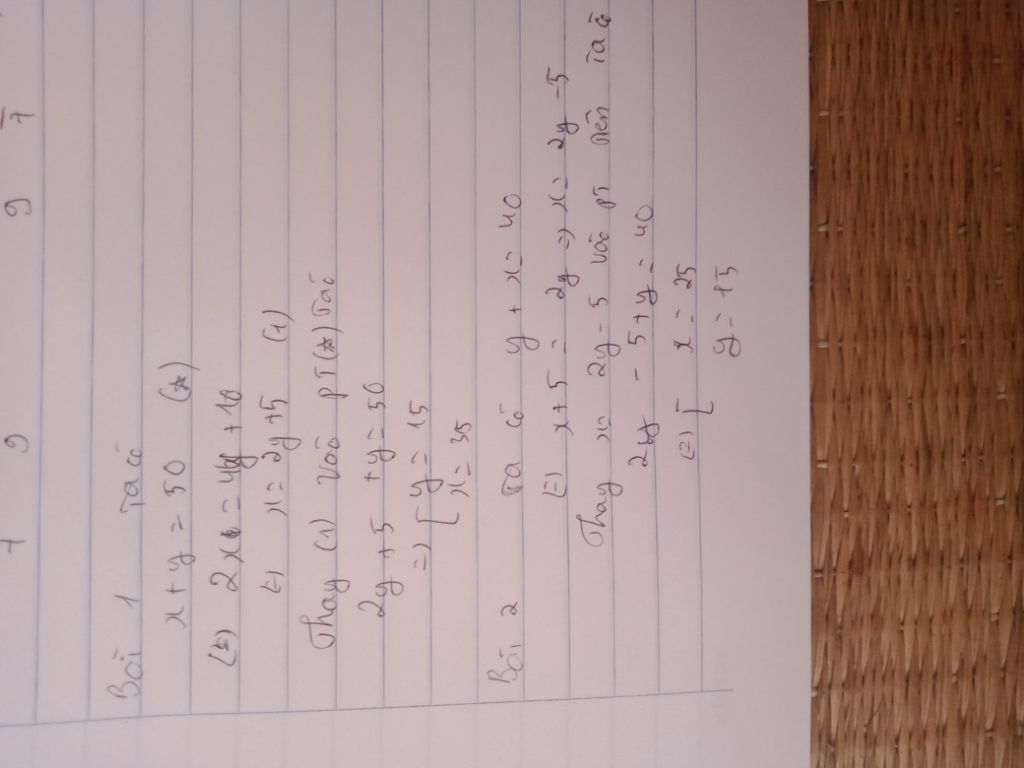 7 9 9 7
Bài 1 Ta có
x + y = 50 (*)
(=) 2x = 4y + 10
(=) x = 2y + 5 (1)
Thay (1) vào pT (*) Ta có
2y + 5 + y = 50
=) [ y = 15
x = 35
Bài 2 Ta có y + x = 40
(=) x + 5 = 2y =) x = 2y - 5
Thay x = 2y - 5 vào pT trên Ta có
2y - 5 + y = 40
(=) [ x = 25
y = 15